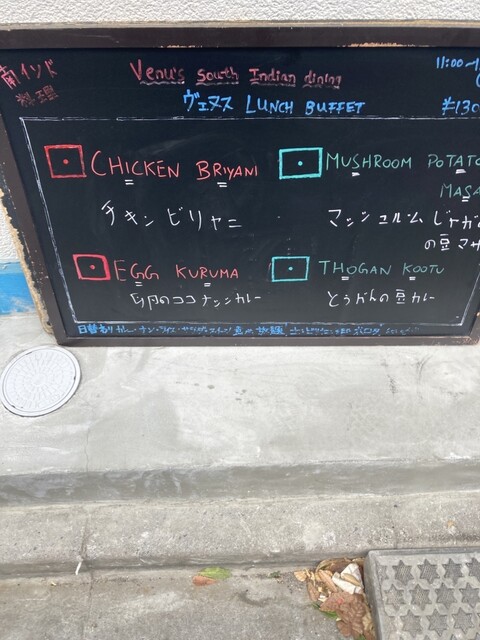 南インド
料理
Venu's south Indian dining
11:00~
ヴェヌス LUNCH BUFFET
¥130
CHICKEN BRIYANI
チキンビリヤニ
MUSHROOM POTATO
MASA
マッシュルム じゃが
の豆マサ
EGG KURUMA
卵のココナッツカレー
THOGAN KOOTU
とうがんの豆カレー
日替りカレー・ナン・ライス・サラダ・スイーツ